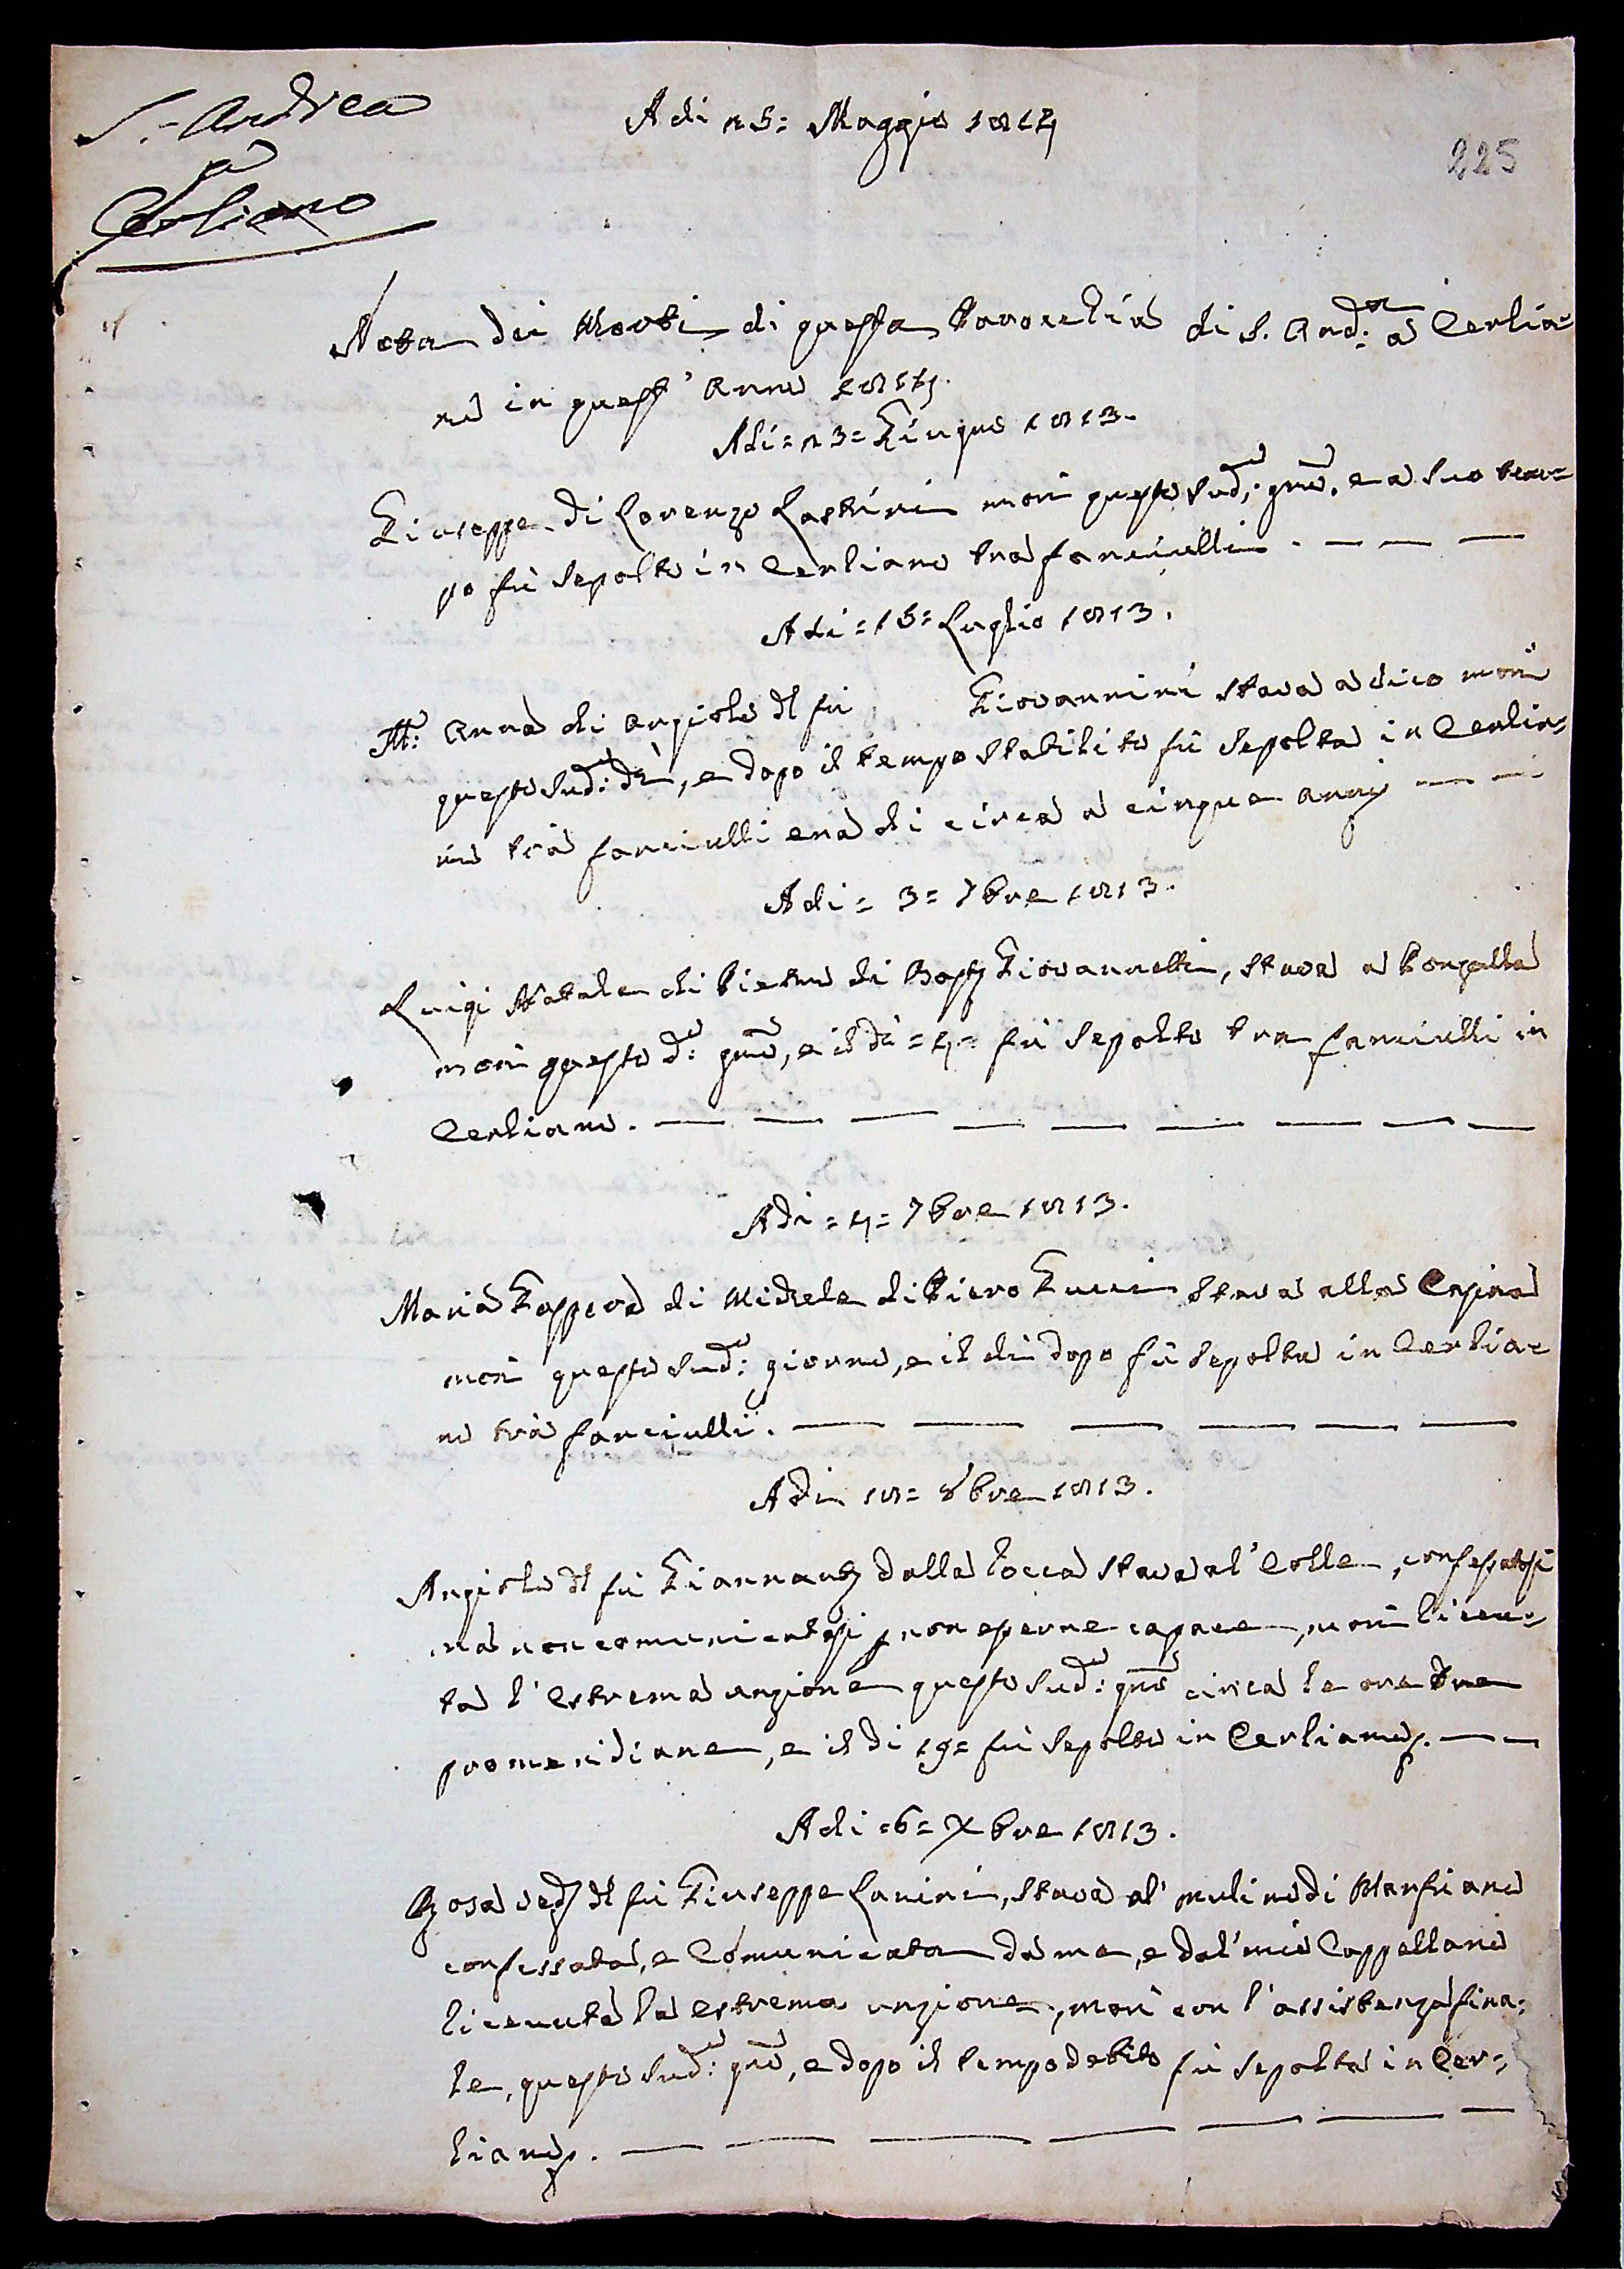 S. Andrea
a
Cerliano
Adi 25= Maggio 1814
225
Nota dei Morti di questa Parocchia di S. And:ª a Cerlia=
no in quest' Anno 1814.
Adi= 23= Giugno 1813.
Giuseppe di Lorenzo Lastrini morì questo Sud:º gnō, e a suo tem=
po fù Sepolto in Cerliano tra fanciulli.
Adi= 15= Luglio 1813.
Mª: Anna di Angiolo dl fù Giovannini stava a morì
questo Sud:º dì, e dopo il tempo stabilito fù Sepolta in Cerlia=
no trà fanciulli era di circa a cinque anni
Adi= 3= 7bre 1813.
Luigi Natale di Pietro di Bapt Giovannetti, stava a
morì questo d:º gnō, e il dì =4= fù Sepolto tra fanciulli in
Cerliano.
Adi =4= 7bre 1813.
Maria di Michele di Piero Gucci stava alla
morì questo Sud:º giorno, e il dì dopo fù Sepolta in Cerlia=
no trà fanciulli.
Adi 18= 8bre 1813.
Angiolo dl fù dalla Rocca stava al' Colle, confessatosi
ma non comunicatosi p non esserne capace, morì ricevu=
ta l'estrema unzione questo Sud:º gnō circa le ore tre
promeridiane, e il dì 19= fù Sepolto in Cerliano.
Adi =6= Xbre 1813.
Rosa ved dl fù Giuseppe Lanini, stava al' mulino di Manfriano
confessata, e Comunicata da me, e dal' mio Cappellano
ricevuta la estrema unzione, morì con l'assistenza fina=
le, questo Sud:º gnō, e dopo il tempo debito fù Sepolta in Cer=
liano.